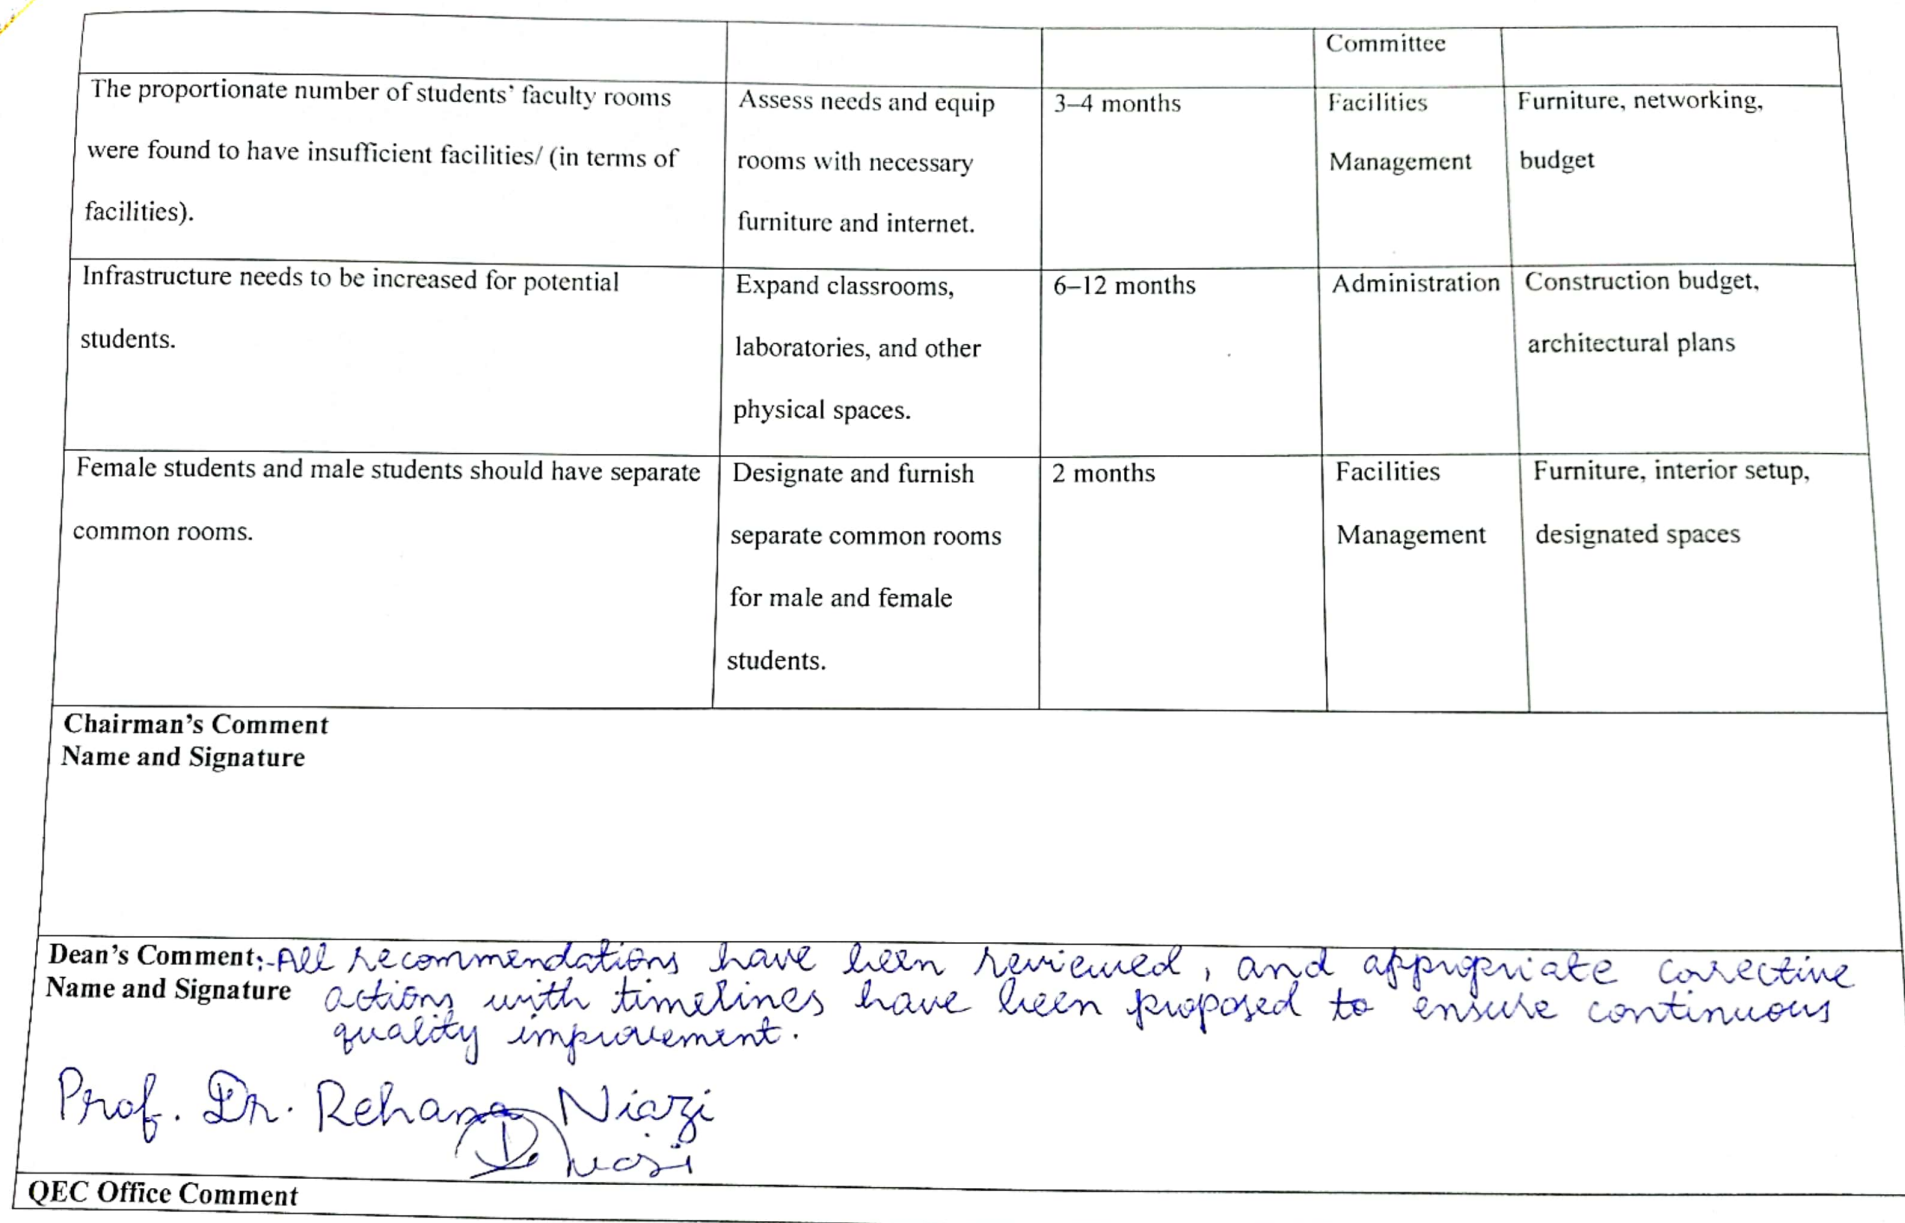 Committee
The proportionate number of students' faculty rooms
were found to have insufficient facilities/ (in terms of
facilities).
Assess needs and equip
rooms with necessary
furniture and internet.
3–4 months
Facilities
Management
Furniture, networking,
budget
Infrastructure needs to be increased for potential
students.
Expand classrooms,
laboratories, and other
physical spaces.
6–12 months
Administration
Construction budget,
architectural plans
Female students and male students should have separate
common rooms.
Designate and furnish
separate common rooms
for male and female
students.
2 months
Facilities
Management
Furniture, interior setup,
designated spaces
Chairman's Comment
Name and Signature
Dean's Comment:- All recommendations have been reviewed, and appropriate corrective
Name and Signature actions with timelines have been proposed to ensure continuous
quality improvement.
Prof. Dr. Rehana Niazi
QEC Office Comment